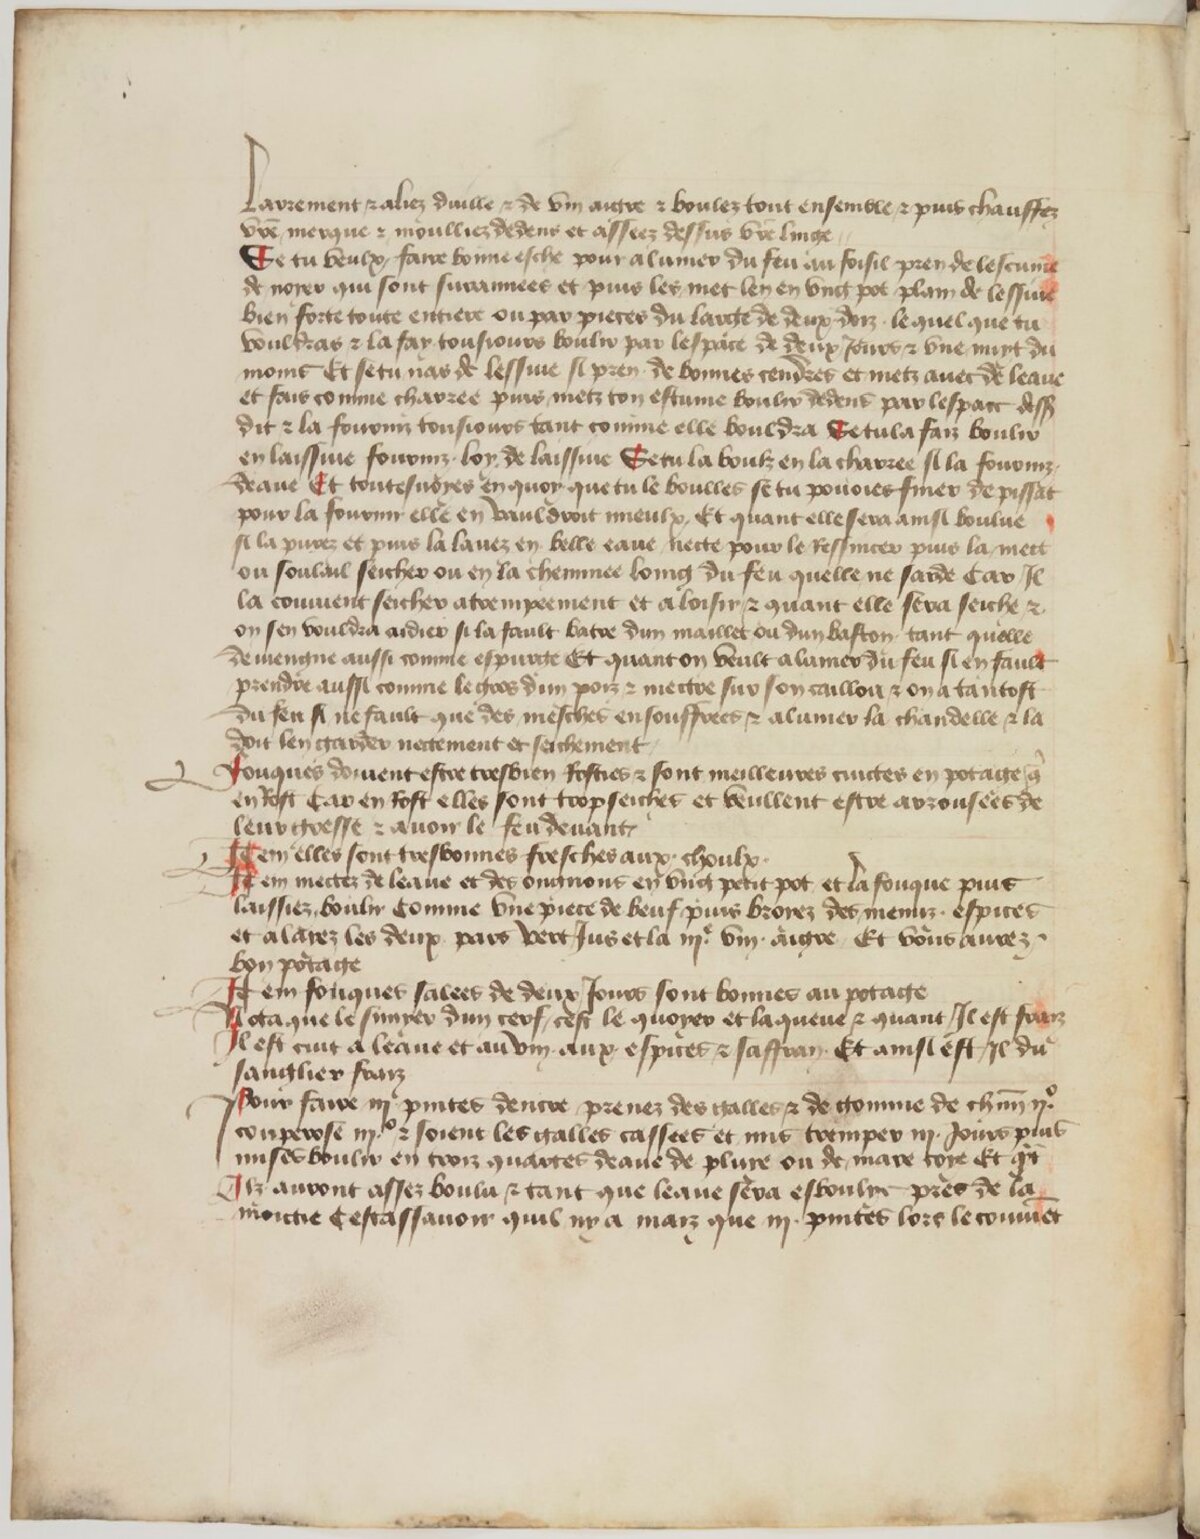 Larrement & aliez duille & de vin aigre & boulez tout ensemble & puis chauffez
vr̄e merque & moulliez dedens et asseez dessus vr̄e linge
Se tu veulx faire bonne esche pour alumer du feu au foisil pren de lescume
de noyer qui sont surannees et puis les met len en vng pot plain de lessiue
bien forte toute entiere ou par pieces du large de deux doiz lequel que tu
vouldras & la fay tousiours boulir par lespace de deux Jours & vne nuyt du
moins Et se tu nas de lessiue si pren de bonnes cendres et metz auec de leaue
et fais comme charree puis metz ton escume boulir dedens par lespace dess
dit & la fourniz tousiours tant comme elle bouldra Se tu la faiz boulir
en laissiue fourniz loy de laissiue Se tu la boulz en la charree si la fourniz
deaue Et toutesuoyes en quoy que tu le boulles se tu pouoies finer de pissat
pour la fournir elle en vauldroit mieulx Et quant elle sera ainsi boulue
si la purez et puis la lauez en belle eaue necte pour le Ressincer puis la mect
ou soulail seicher ou en la cheminee loing du feu quelle ne sarde Car Il
la conuient seicher atrempeement et a loisir & quant elle sera seiche &
on sen vouldra aidier si la fault batre dun maillet ou dun baston tant quelle
deuiengne aussi comme espurge Et quant on veult alumer du feu si en fault
prendre aussi comme le gros dun poiz & mectre sur son caillou & on a tantost
du feu si ne fault que des mesches ensouffrees & alumer la chandelle & la
doit len garder nectement et seichement
Fouques doiuent estre tresbien Rosties & sont meilleures cuictes en potage q̄
en Rost Car en Rost elles sont trop seiches et veullent estre arrousees de
leur gresse & auoir le feu deuant
Item elles sont tresbonnes fresches aux choulx
Item mectez de leaue et des ongnons en vng petit pot et la fouque puis
laissiez boulir Comme vne piece de beuf puis broyez des menuz espices
et alayez les deux pars vert Jus et la iije vin aigre Et vous aurez
bon potage
Item fouques salees de deux Jours sont bonnes au potage
Nota que le simyer dun cerf cest le quoyer et la queue & quant Il est fraiz
Il est cuit a leaue et au vin aux espices & saffran Et ainsi est Il du
sanglier fraiz
Pour faire iij pintes dencre prenez des galles & de gomme de chūn ijo
couperose iijo & soient les galles cassees et mis tremper iij Jours puis
mises boulir en troiz quartes deaue de pluye ou de mare coye Et qn̄t
Ilz auront assez boulu & tant que leaue sera esboulye pres de la
moictie Cestassauoir quil ny a maiz que iij pintes lors le conuiēt